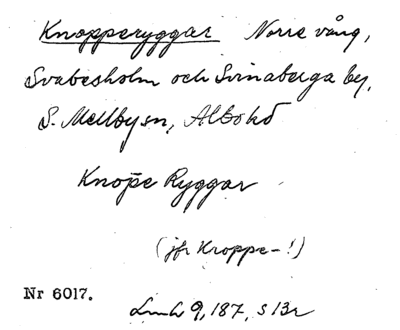 Knopperyggar Norre vång,
Svabesholm och Svinaberga by,
S. Mellby sn, Albo hd
Knop̄e Ryggar
(jfr Kroppe-!)
Nr 6017.
9, 187, s 13r